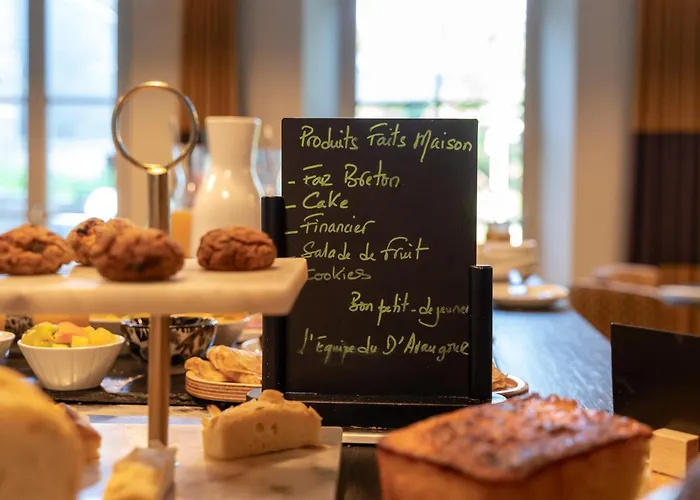 Produits Faits Maison
- Faz Breton
- Cake
- Financier
Salade de fruit
Cookies
Bon petit-dejeuner
l'Equipe du D'Avaugour